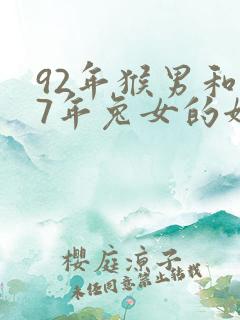 92年猴男和
7年兔女的
櫻庭涼子
未经同意禁止转载